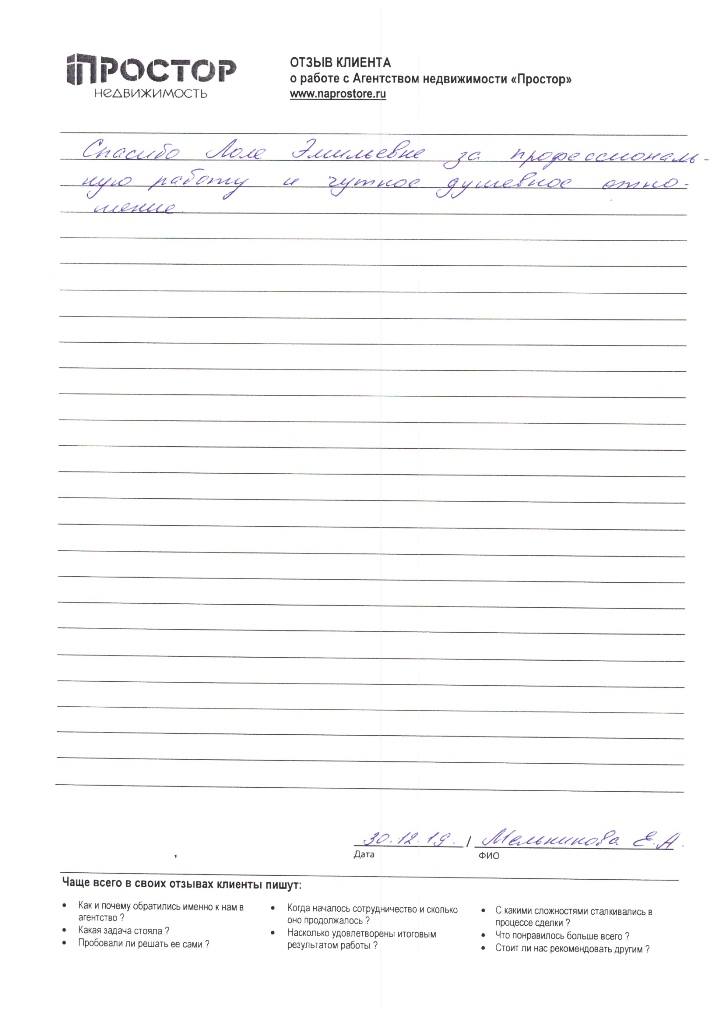 ПРОСТОР
НЕДВИЖИМОСТЬ
ОТЗЫВ КЛИЕНТА
о работе с Агентством недвижимости «Простор»
www.naprostore.ru
Спасибо Лоле Эмильевне за профессиональ-
ную работу и чуткое душевное отно-
шение.
30.12.19. / Мельникова Е.А.
Дата
ФИО
Чаще всего в своих отзывах клиенты пишут:
• Как и почему обратились именно к нам в
агентство ?
• Какая задача стояла ?
• Пробовали ли решать ее сами ?
• Когда началось сотрудничество и сколько
оно продолжалось ?
• Насколько удовлетворены итоговым
результатом работы ?
• С какими сложностями сталкивались в
процессе сделки ?
• Что понравилось больше всего ?
• Стоит ли нас рекомендовать другим ?